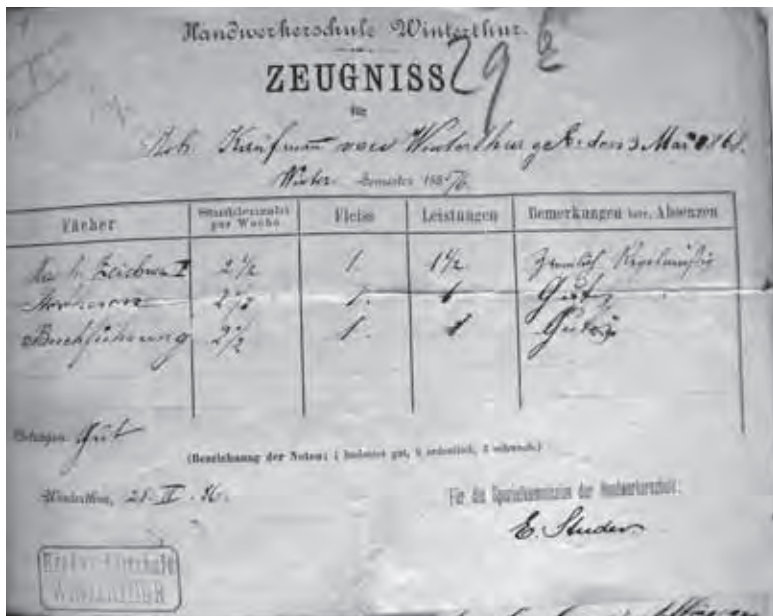 Handwerkerschule Winterthur.
ZEUGNISS
29
für
Kaufmann von Winterthur geb. den 3 Mai 1868.
Winter Semester 1885/6
Fächer Stundenzahl per Woche Fleiss Leistungen Bemerkungen bez. Absenzen
Zeichnen I 2 1/2 1. 1 1/2 Ziemlich Regelmäßig
2 1/2 1. 1 Gut
Buchführung 2 1/2 1. 1 Gut
Betragen Gut
(Bezeichnung der Noten: 1 bedeutet gut, 2 ordentlich, 3 schwach.)
Winterthur, 28. II. 86.
Für die der Handwerkerschule:
E. Studer
Handwerkerschule
WINTERTHUR